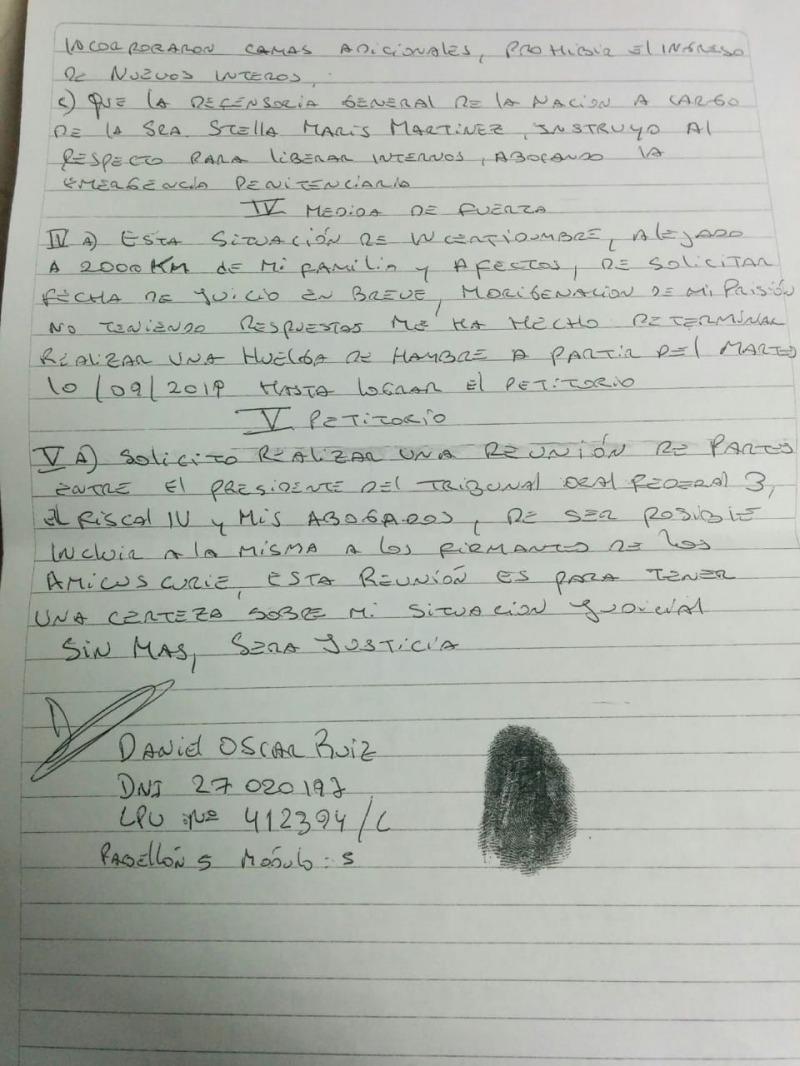 INCORPORARON CAMAS ADICIONALES, PROHIBIR El INGRESO
DE NUEVOS INTEROS,
c) QUE LA DEFENSORIA GENERAL DE LA NACION A CARGO
DE LA SRA. STELLA MARIS MARTINEZ, INSTRUYO Al
RESPECTO PARA LIBERAR INTERNOS, ABOCANDO LA
EMERGENCIA PENITENCIARIA
IV MEDIDA DE FUERZA
IV A) ESTA SITUACIÓN DE INCERTIDUMBRE, AlEJADO
A 2000 KM de Mi FAMiliA y AFECTOS, DE SOLICITAR
FECHA DE JUICIO EN BREVE, MORIGENACION DE Mi PRISIÓN
NO TENIENDO RESPUESTAS ME HA HECHO DETERMINAR
REALIZAR UNA HUELGA DE HAMBRE A PARTIR DEl MARTES
10/09/2019 HASTA LOGRAR El PETITORIO
V PETITORIO
V A) SOLICITO REALIZAR UNA REUNIÓN DE PARTES
ENTRE El PRESIDENTE DEL TRIBUNAL ORAl FEDERAl 3,
El FISCAl IV y MIS ABOGADOS, DE SER POSIBlE
INCLUIR A LA MISMA A LOS FIRMANTES DE LOS
AMICUS CURIE, ESTA REUNIÓN ES PARA TENER
UNA CERTEZA SOBRE Mi SITUACION JUDICIAL
SIN MAS, SERA JUSTICIA
DANIEl OSCAR RUIZ
DNI 27 020 197
LPU Nº 412394/C
PABELLÓN 5 MÓDULO: 5